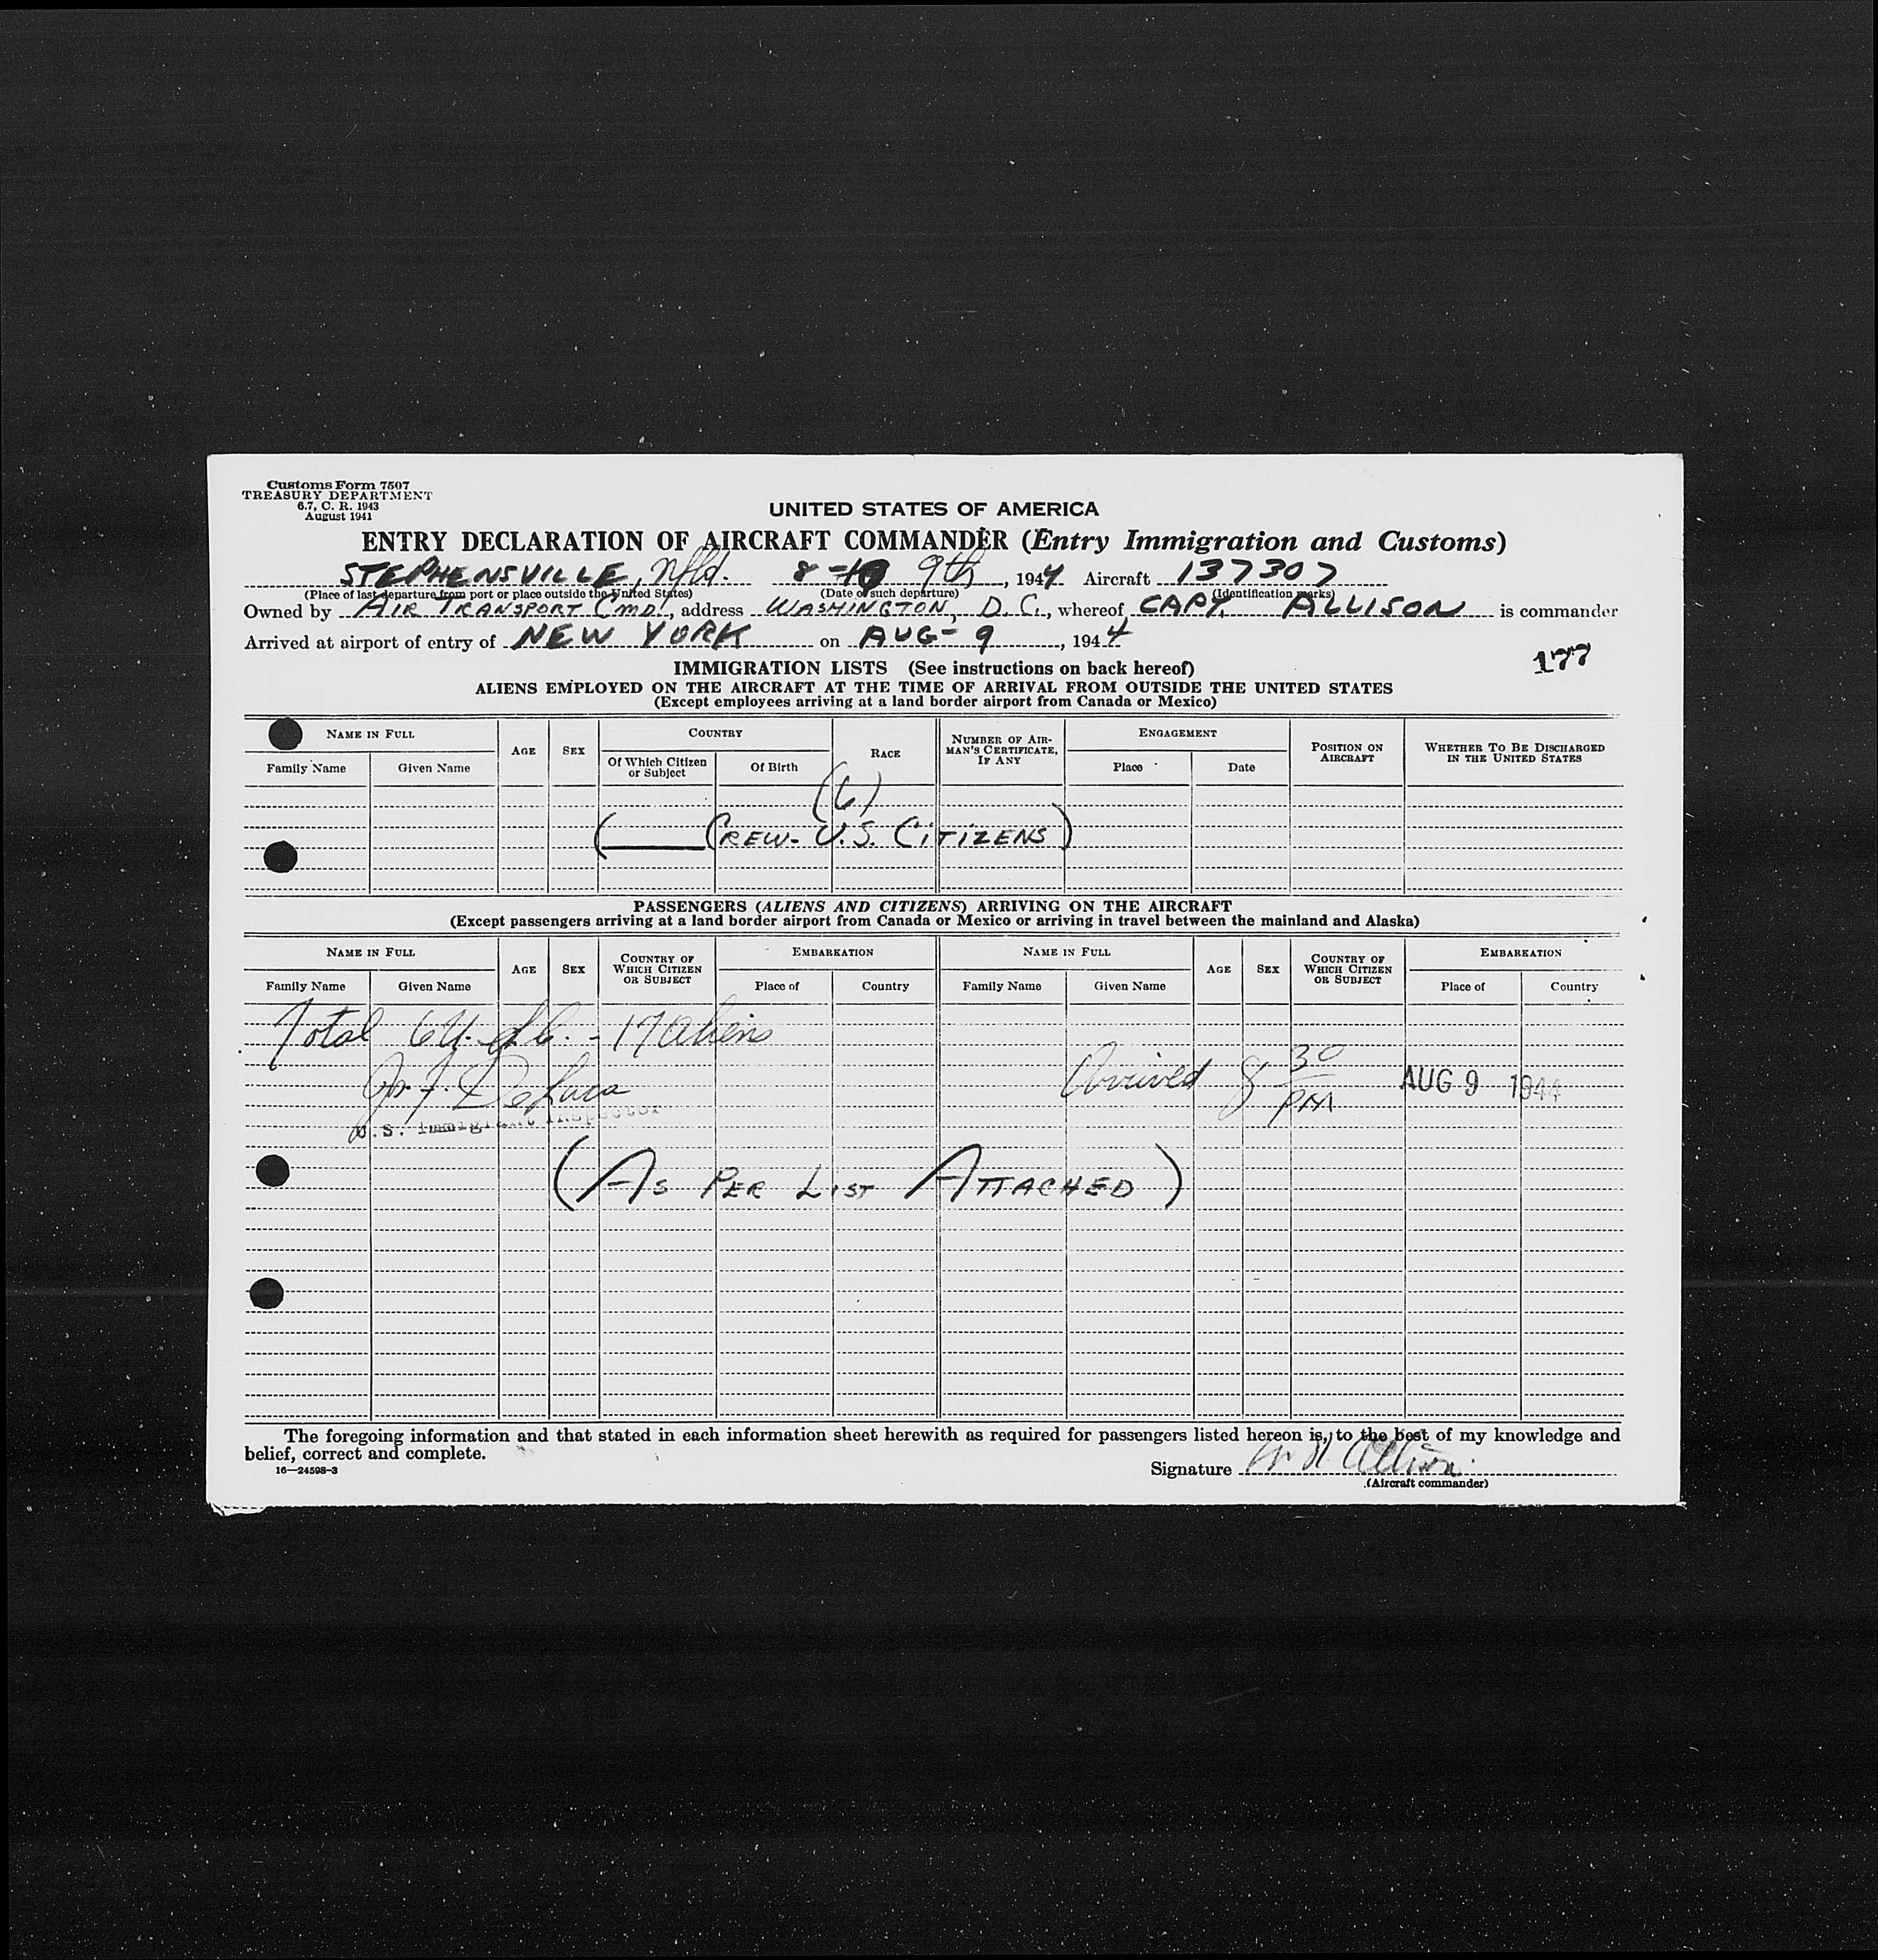 Customs Form 7507
TREASURY DEPARTMENT
6.7, C. R. 1943
August 1941
UNITED STATES OF AMERICA
ENTRY DECLARATION OF AIRCRAFT COMMANDER (Entry Immigration and Customs)
STEPHENSVILLE, Nfld. 8- 9th, 1944 Aircraft 137307
(Place of last departure from port or place outside the United States) (Date of such departure) (Identification marks)
Owned by AIR TRANSPORT CMD., address WASHINGTON, D.C., whereof CAPT. ALLISON is commander
Arrived at airport of entry of NEW YORK on AUG-9, 1944
177
IMMIGRATION LISTS (See instructions on back hereof)
ALIENS EMPLOYED ON THE AIRCRAFT AT THE TIME OF ARRIVAL FROM OUTSIDE THE UNITED STATES
(Except employees arriving at a land border airport from Canada or Mexico)
NAME IN FULL AGE SEX COUNTRY RACE NUMBER OF AIRMAN'S CERTIFICATE, IF ANY ENGAGEMENT POSITION ON AIRCRAFT WHETHER TO BE DISCHARGED IN THE UNITED STATES
Family Name Given Name Of Which Citizen or Subject Of Birth Place Date
(6)
(CREW- U.S. CITIZENS)
PASSENGERS (ALIENS AND CITIZENS) ARRIVING ON THE AIRCRAFT
(Except passengers arriving at a land border airport from Canada or Mexico or arriving in travel between the mainland and Alaska)
NAME IN FULL AGE SEX COUNTRY OF WHICH CITIZEN OR SUBJECT EMBARKATION NAME IN FULL AGE SEX COUNTRY OF WHICH CITIZEN OR SUBJECT EMBARKATION
Family Name Given Name Place of Country Family Name Given Name Place of Country
Total 6 U.S.C. - 17 Aliens
DeLuca Arrived 8 30 PM AUG 9 1944
U.S. Immigrant Inspector
(AS PER LIST ATTACHED)
The foregoing information and that stated in each information sheet herewith as required for passengers listed hereon is, to the best of my knowledge and
belief, correct and complete.
16—24598-3
Signature Allison
(Aircraft commander)